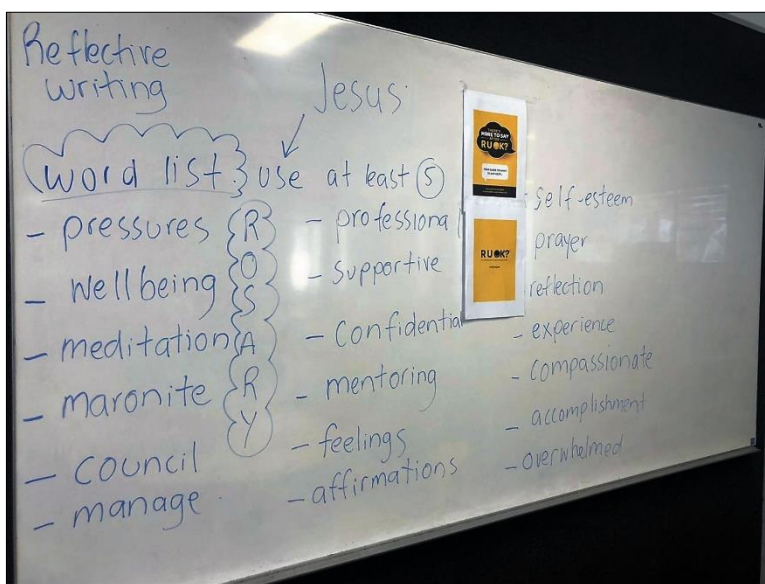 Reflective
writing
Jesus
word list: use at least 5
- pressures
- wellbeing
- meditation
- maronite
- council
- manage
R
O
S
A
R
Y
- professional
- supportive
- confidential
- mentoring
- feelings
- affirmations
MORE TO SAY
RUOK?
RUOK?
- self-esteem
prayer
reflection
- experience
- compassionate
- accomplishment
- overwhelmed